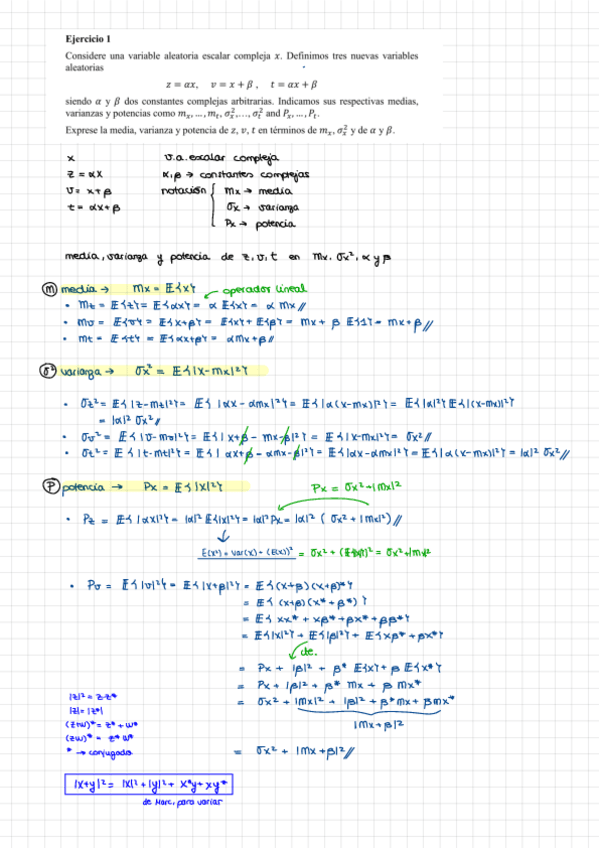 Ejercicio 1
Considere una variable aleatoria escalar compleja x. Definimos tres nuevas variables
aleatorias
z = αx, v = x + β , t = αx + β
siendo α y β dos constantes complejas arbitrarias. Indicamos sus respectivas medias,
varianzas y potencias como m_x, ..., m_t, σ_x^2, ..., σ_t^2 and P_x, ..., P_t.
Exprese la media, varianza y potencia de z, v, t en términos de m_x, σ_x^2 y de α y β.
x v.a. escalar compleja
z = αx α,β → constantes complejas
v = x+β notación { mx → media
t = αx+β σx → varianza
Px → potencia
media, varianza y potencia de z,v,t en mx, σx², α y β
(m) media → mx = E{x} operador lineal
• mz = E{z} = E{αx} = α E{x} = α mx //
• mv = E{v} = E{x+β} = E{x} + E{β} = mx + β E{1} = mx+β //
• mt = E{t} = E{αx+β} = αmx+β //
(σ²) varianza → σx² = E{|x-mx|²}
• σz² = E{|z-mz|²} = E{|αx-αmx|²} = E{|α(x-mx)|²} = E{|α|²} E{|(x-mx)|²}
= |α|² σx² //
• σv² = E{|v-mv|²} = E{|x+β-mx-β|²} = E{|x-mx|²} = σx² //
• σt² = E{|t-mt|²} = E{|αx+β-αmx-β|²} = E{|αx-αmx|²} = E{|α(x-mx)|²} = |α|² σx² //
(P) potencia → Px = E{|x|²} Px = σx²+|mx|²
• Pz = E{|αx|²} = |α|² E{|x|²} = |α|² Px = |α|² (σx² + |mx|²) //
E(x²) = var(x) + (E(x))² = σx² + (E{x})² = σx²+|mx|²
• Pv = E{|v|²} = E{|x+β|²} = E{(x+β)(x+β)*}
= E{(x+β)(x*+β*)}
= E{xx* + xβ* + βx* + ββ*}
= E{|x|²} + E{|β|²} + E{xβ* + βx*}
de.
= Px + |β|² + β* E{x} + β E{x*}
= Px + |β|² + β* mx + β mx*
= σx² + |mx|² + |β|² + β*mx + βmx*
|mx+β|²
= σx² + |mx+β|² //
|z|² = z·z*
|z| = |z*|
(z+w)* = z* + w*
(zw)* = z* w*
* → conjugado
|x+y|² = |x|² + |y|² + x*y + xy*
de Marc, para variar